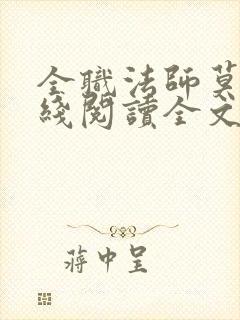 全職法師莫
綫閱讀全文
蔣中呈